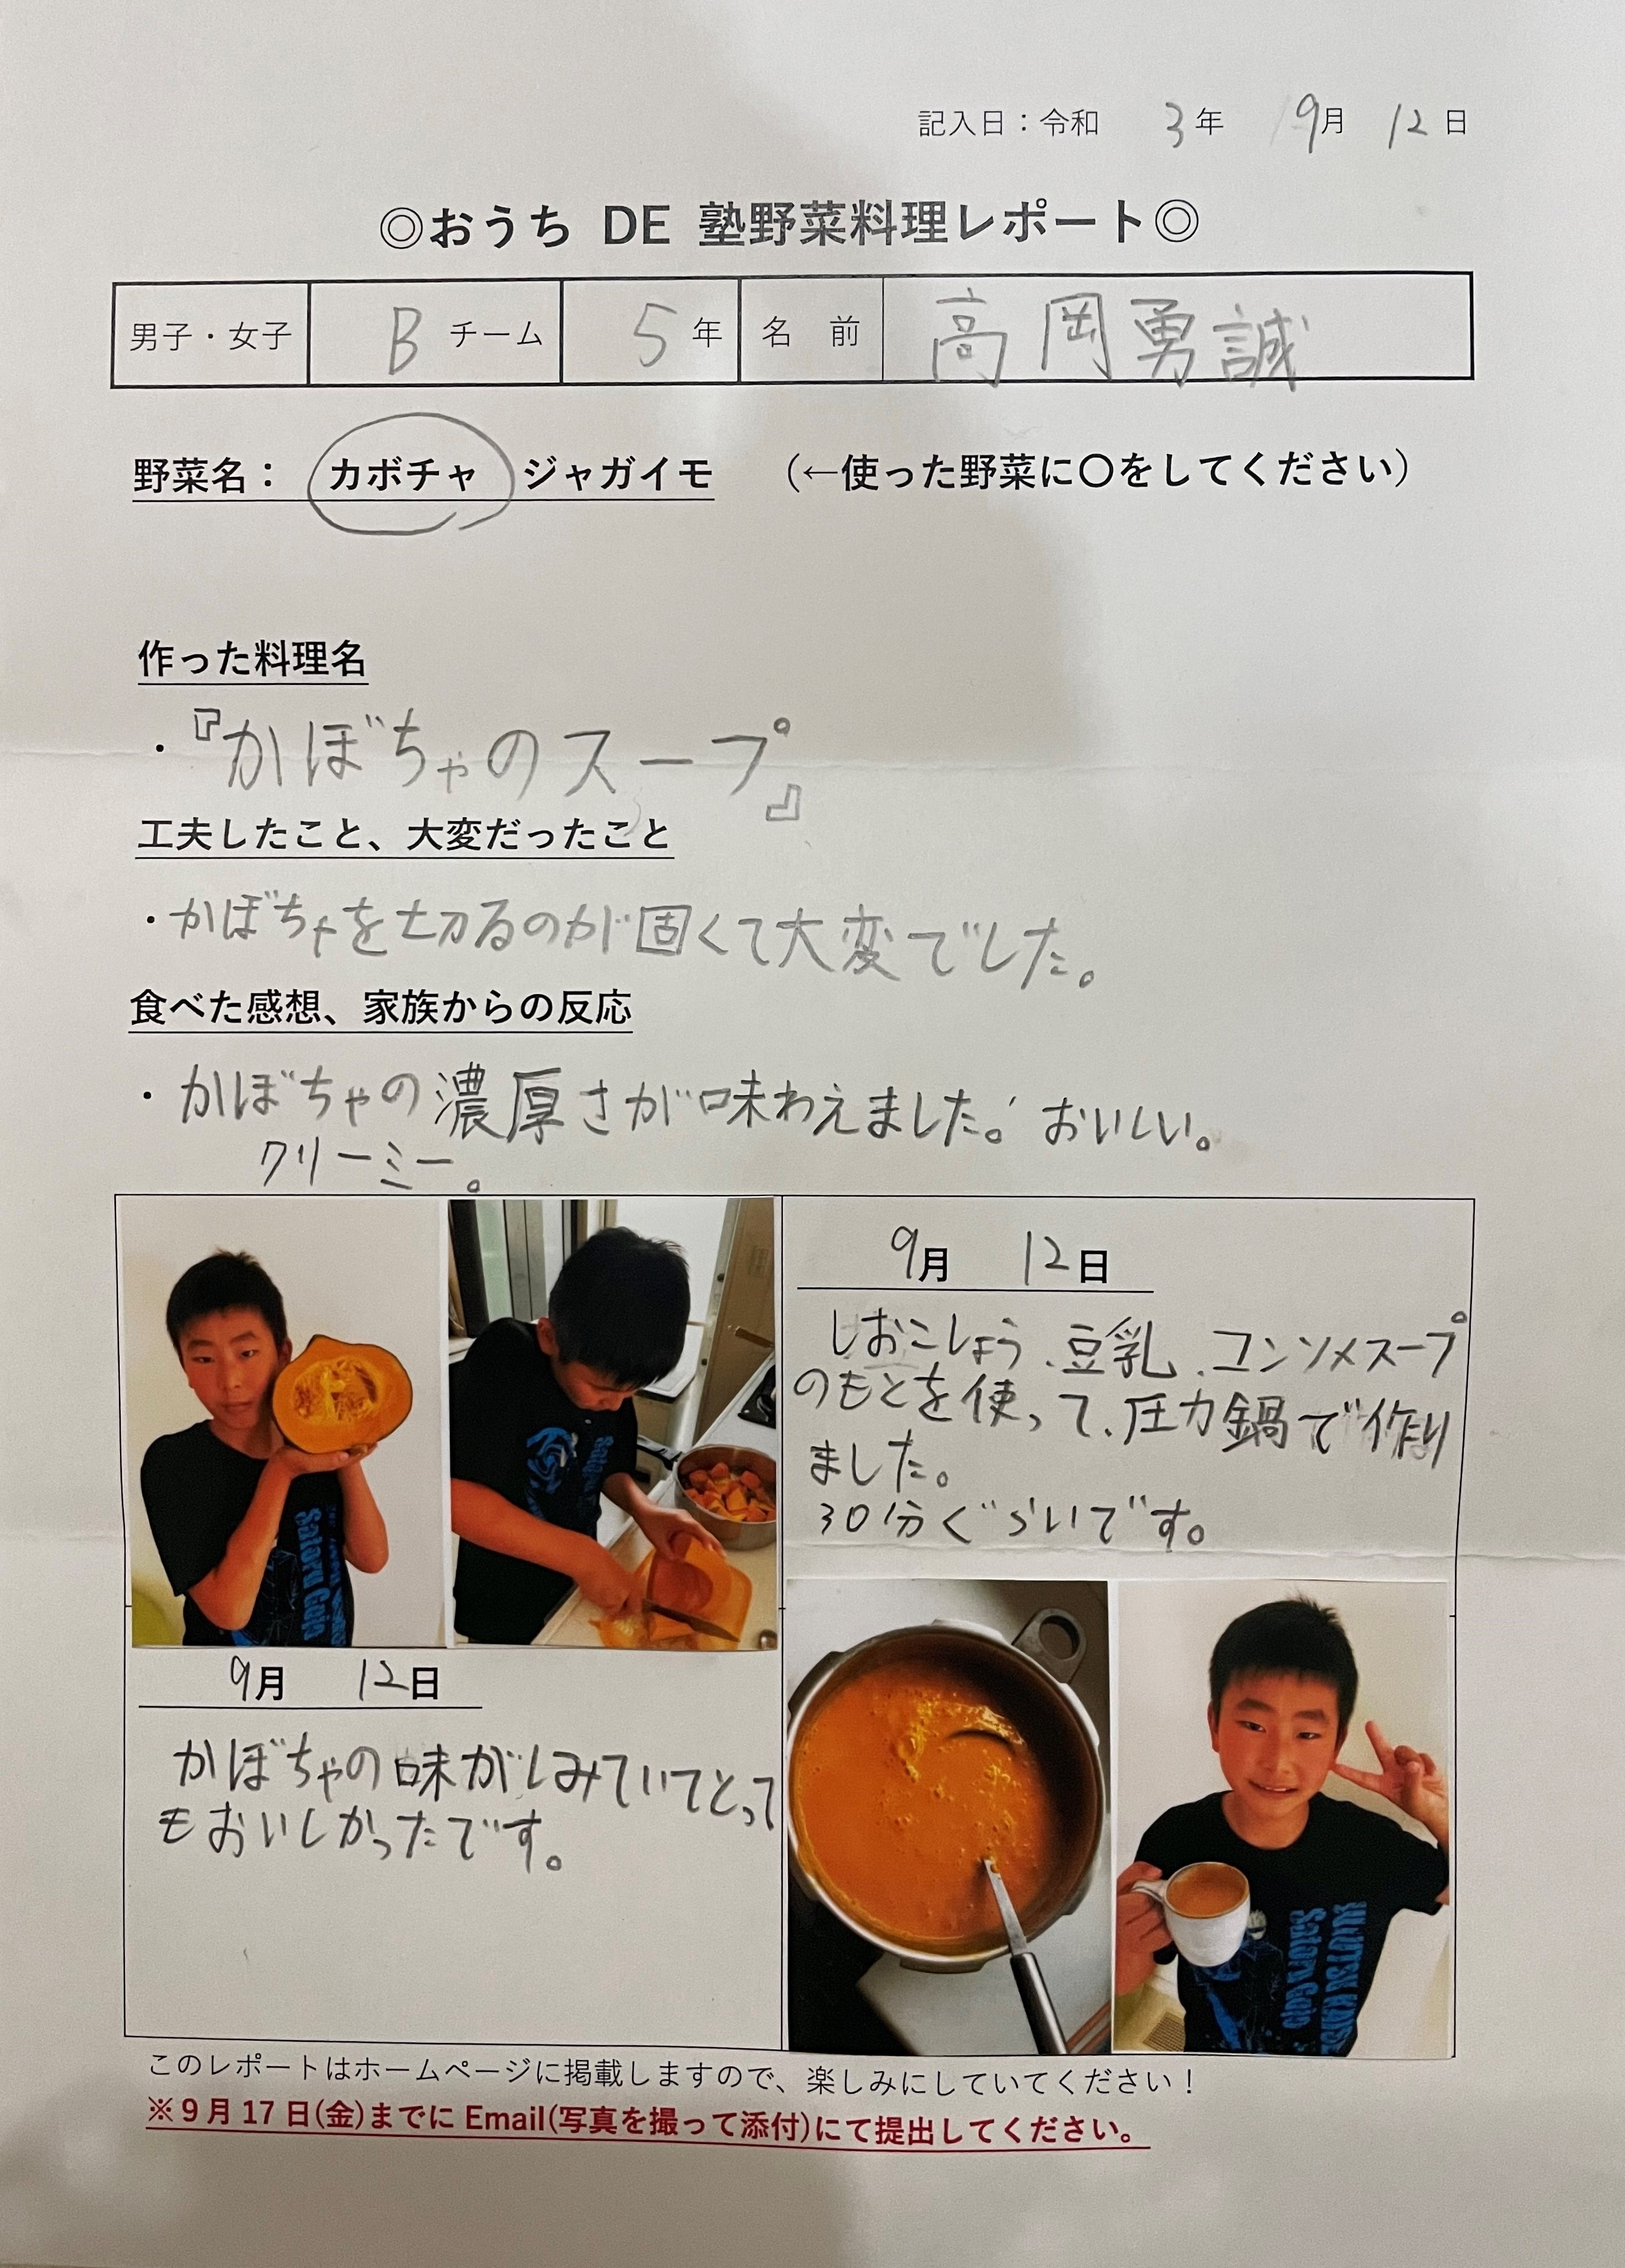 記入日：令和 3年 9月 12日
◎おうち DE 塾野菜料理レポート◎
男子・女子 B チーム 5 年 名 前 高岡勇誠
野菜名： カボチャ ジャガイモ （←使った野菜に〇をしてください）
作った料理名
・『かぼちゃのスープ』
工夫したこと、大変だったこと
・かぼちゃを切るのが固くて大変でした。
食べた感想、家族からの反応
・かぼちゃの濃厚さが味わえました。おいしい。
クリーミー。
9月 12日
しおこしょう、豆乳、コンソメスープ
のもとを使って、圧力鍋で作り
ました。
30分ぐらいです。
9月 12日
かぼちゃの味がしみていてとって
もおいしかったです。
Satoru Gojo
Satoru Gojo
このレポートはホームページに掲載しますので、楽しみにしていてください！
※9月17日(金)までにEmail(写真を撮って添付)にて提出してください。